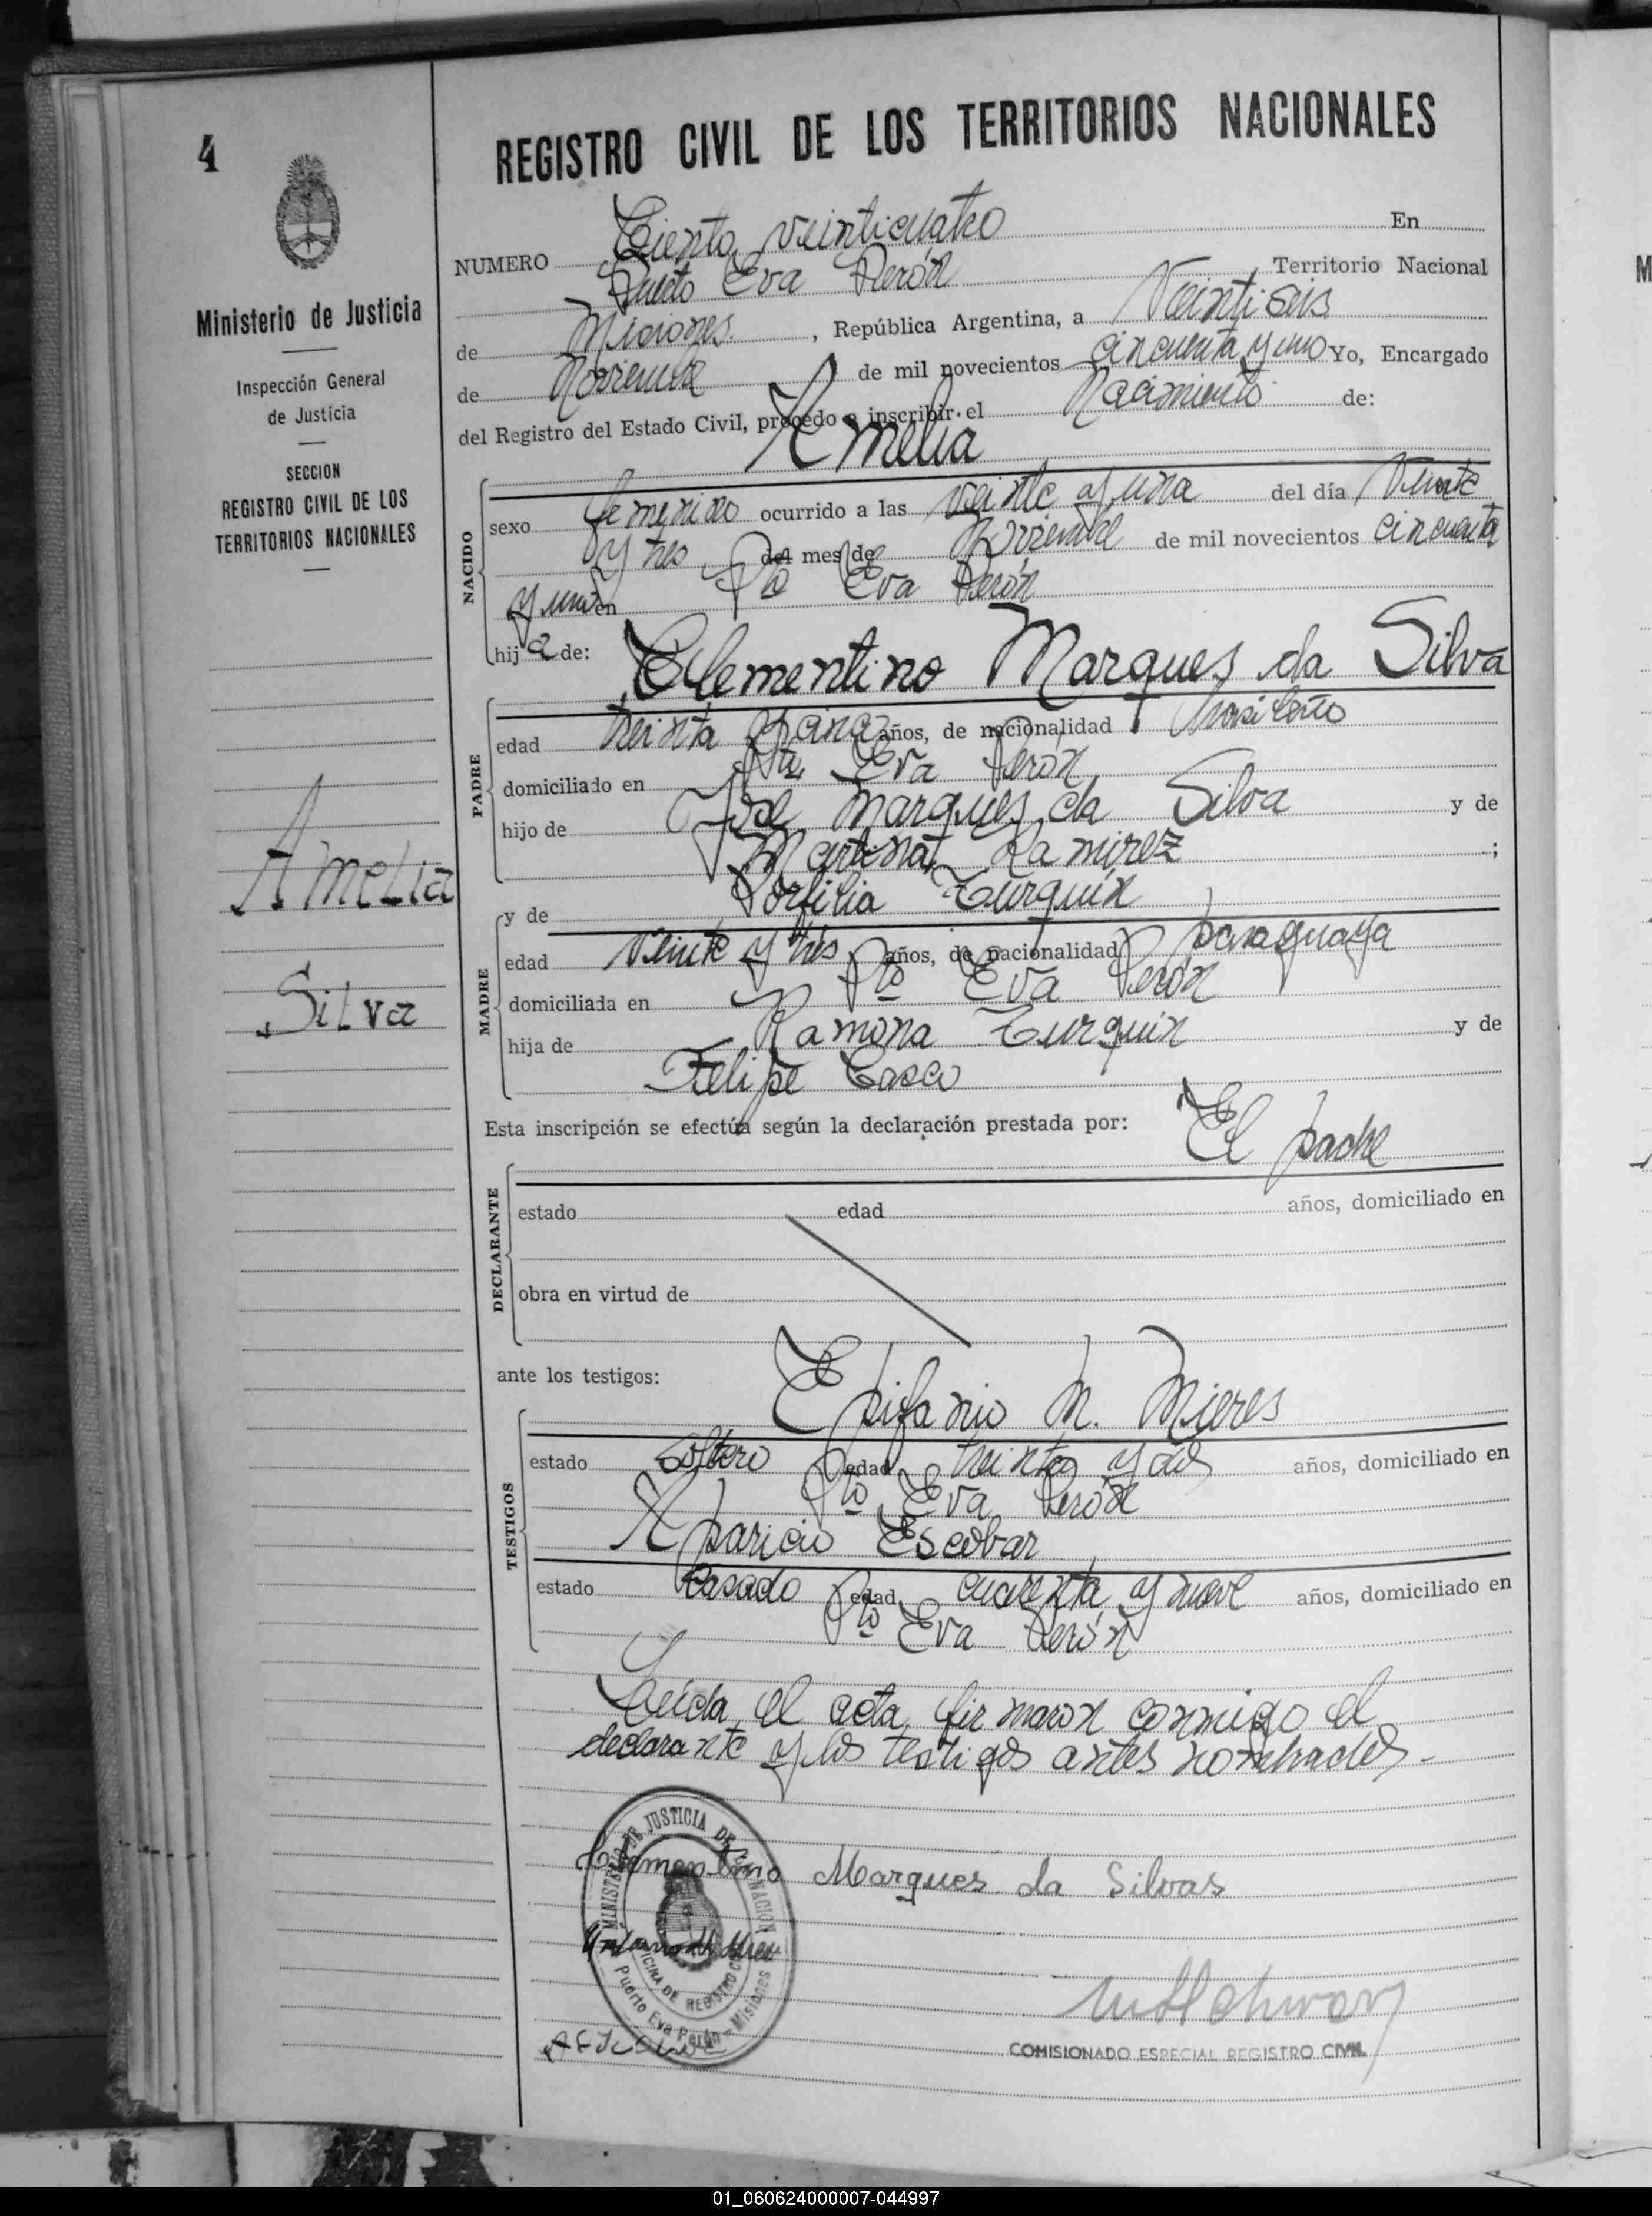 4
Ministerio de Justicia
Inspección General
de Justicia
SECCION
REGISTRO CIVIL DE LOS
TERRITORIOS NACIONALES
Amelia
Silva
REGISTRO CIVIL DE LOS TERRITORIOS NACIONALES
NUMERO Ciento veinticuatro En
Puerto Eva Perón Territorio Nacional
de Misiones. , República Argentina, a Veintiseis
de Noviembre de mil novecientos cincuenta y uno Yo, Encargado
del Registro del Estado Civil, procedo a inscribir el Nacimiento de:
Amelia
NACIDO
sexo femenino ocurrido a las veinte y una del día Veinte
y tres del mes de Noviembre de mil novecientos cincuenta
y uno en Pto Eva Perón
hija de: Clementino Marques da Silva
PADRE
edad treinta años, de nacionalidad brasileño
domiciliado en Pto. Eva Perón
hijo de José Marques da Silva y de
Martina Ramirez ;
y de Porfilia Turquin
MADRE
edad Veinte y tres años, de nacionalidad paraguaya
domiciliada en Pto Eva Perón
hija de Ramona Turquin y de
Felipe Casco
Esta inscripción se efectúa según la declaración prestada por: El padre
DECLARANTE
estado edad años, domiciliado en
obra en virtud de
ante los testigos: Epifanio M. Mieres
TESTIGOS
estado Soltero edad treinta y dos años, domiciliado en
Pto Eva Perón
Aparicio Escobar
estado Casado edad cuarenta y nueve años, domiciliado en
Pto Eva Perón
Leída el acta, firmaron conmigo el
declarante y los testigos antes nombrados.-
Clementino Marques da Silvas
MINISTERIO DE JUSTICIA DE LA NACION
OFICINA DE REGISTRO CIVIL
Puerto Eva Perón - Misiones
COMISIONADO ESPECIAL REGISTRO CIVIL
01_060624000007-044997